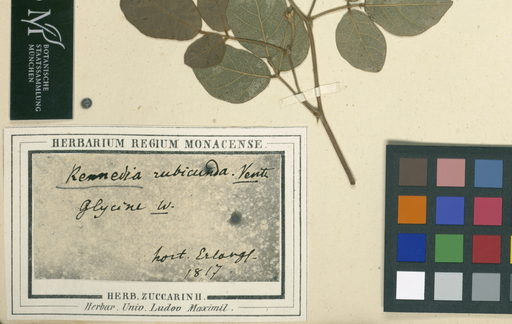 M
BOTANISCHE
STAATSSAMMLUNG
MÜNCHEN
HERBARIUM REGIUM MONACENSE.
Kennedia rubicunda. Vent.
Glycine W.
hort. Erlang.
1817
HERB. ZUCCARINII.
Herbar. Univ. Ludov. Maximil.